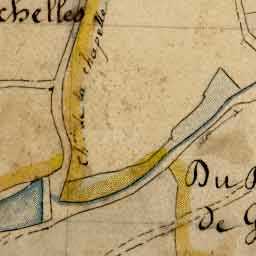 chelles
Ch.in de la chapelle
Du
de